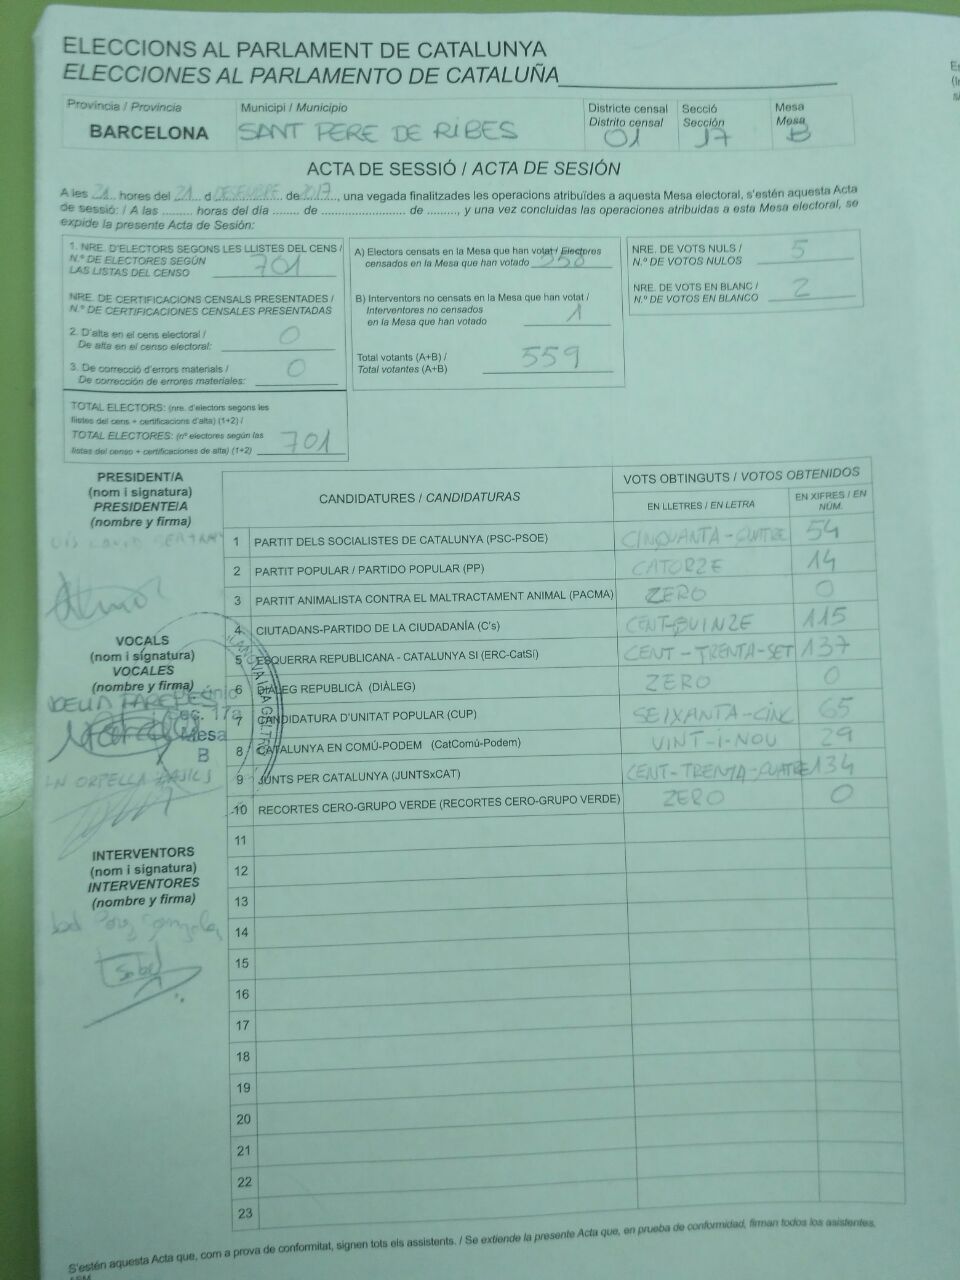 ELECCIONS AL PARLAMENT DE CATALUNYA
ELECCIONES AL PARLAMENTO DE CATALUÑA
Província / Provincia
BARCELONA
Municipi / Municipio
SANT PERE DE RIBES
Districte censal
Distrito censal
01
Secció
Sección
17
Mesa
Mesa
B
ACTA DE SESSIÓ / ACTA DE SESIÓN
A les 21 hores del 21 d DESEMBRE de 2017, una vegada finalitzades les operacions atribuïdes a aquesta Mesa electoral, s'estén aquesta Acta
de sessió: / A las ......... horas del día ....... de ........................ de ........, y una vez concluidas las operaciones atribuidas a esta Mesa electoral, se
expide la presente Acta de Sesión:
1. NRE. D'ELECTORS SEGONS LES LLISTES DEL CENS /
N.º DE ELECTORES SEGÚN
LAS LISTAS DEL CENSO 701
NRE. DE CERTIFICACIONS CENSALS PRESENTADES /
N.º DE CERTIFICACIONES CENSALES PRESENTADAS
2. D'alta en el cens electoral /
De alta en el censo electoral: 0
3. De correcció d'errors materials /
De corrección de errores materiales: 0
TOTAL ELECTORS: (nre. d'electors segons les
llistes del cens + certificacions d'alta) (1+2) /
TOTAL ELECTORES: (nº electores según las
listas del censo + certificaciones de alta) (1+2) 701
A) Electors censats en la Mesa que han votat / Electores
censados en la Mesa que han votado 558
B) Interventors no censats en la Mesa que han votat /
Interventores no censados
en la Mesa que han votado 1
Total votants (A+B) /
Total votantes (A+B) 559
NRE. DE VOTS NULS /
N.º DE VOTOS NULOS 5
NRE. DE VOTS EN BLANC /
N.º DE VOTOS EN BLANCO 2
PRESIDENT/A
(nom i signatura)
PRESIDENTE/A
(nombre y firma)
VOCALS
(nom i signatura)
VOCALES
(nombre y firma)
Sec. 17a
Mesa
B
INTERVENTORS
(nom i signatura)
INTERVENTORES
(nombre y firma)
CANDIDATURES / CANDIDATURAS
VOTS OBTINGUTS / VOTOS OBTENIDOS
EN LLETRES / EN LETRA
EN XIFRES / EN
NÚM.
1 PARTIT DELS SOCIALISTES DE CATALUNYA (PSC-PSOE) CINQUANTA-QUATRE 54
2 PARTIT POPULAR / PARTIDO POPULAR (PP) CATORZE 14
3 PARTIT ANIMALISTA CONTRA EL MALTRACTAMENT ANIMAL (PACMA) ZERO 0
4 CIUTADANS-PARTIDO DE LA CIUDADANÍA (C's) CENT-QUINZE 115
5 ESQUERRA REPUBLICANA - CATALUNYA SÍ (ERC-CatSí) CENT-TRENTA-SET 137
6 DIÀLEG REPUBLICÀ (DIÀLEG) ZERO 0
7 CANDIDATURA D'UNITAT POPULAR (CUP) SEIXANTA-CINC 65
8 CATALUNYA EN COMÚ-PODEM (CatComú-Podem) VINT-I-NOU 29
9 JUNTS PER CATALUNYA (JUNTSxCAT) CENT-TRENTA-QUATRE 134
10 RECORTES CERO-GRUPO VERDE (RECORTES CERO-GRUPO VERDE) ZERO 0
11
12
13
14
15
16
17
18
19
20
21
22
23
S'estén aquesta Acta que, com a prova de conformitat, signen tots els assistents. / Se extiende la presente Acta que, en prueba de conformidad, firman todos los asistentes.